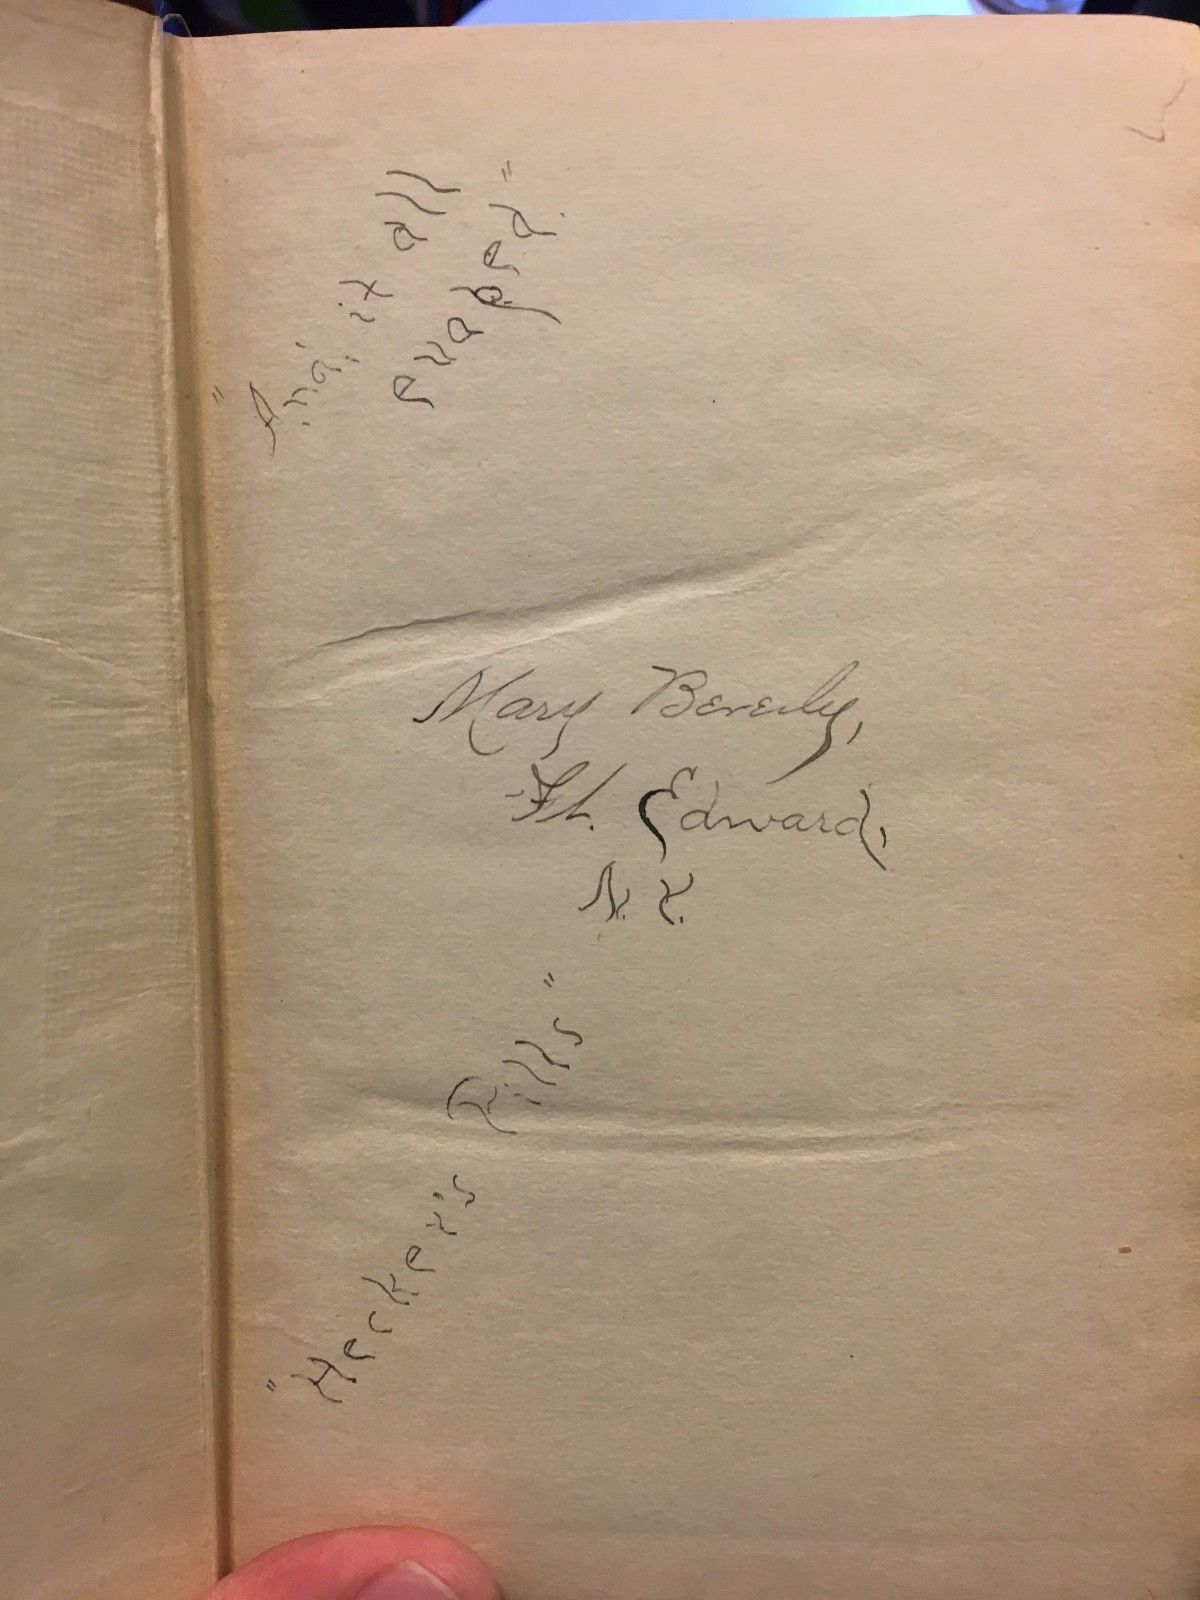 "And, it all
Mary Beverly,
Ft. Edward,
N. Y.
"Hecker's